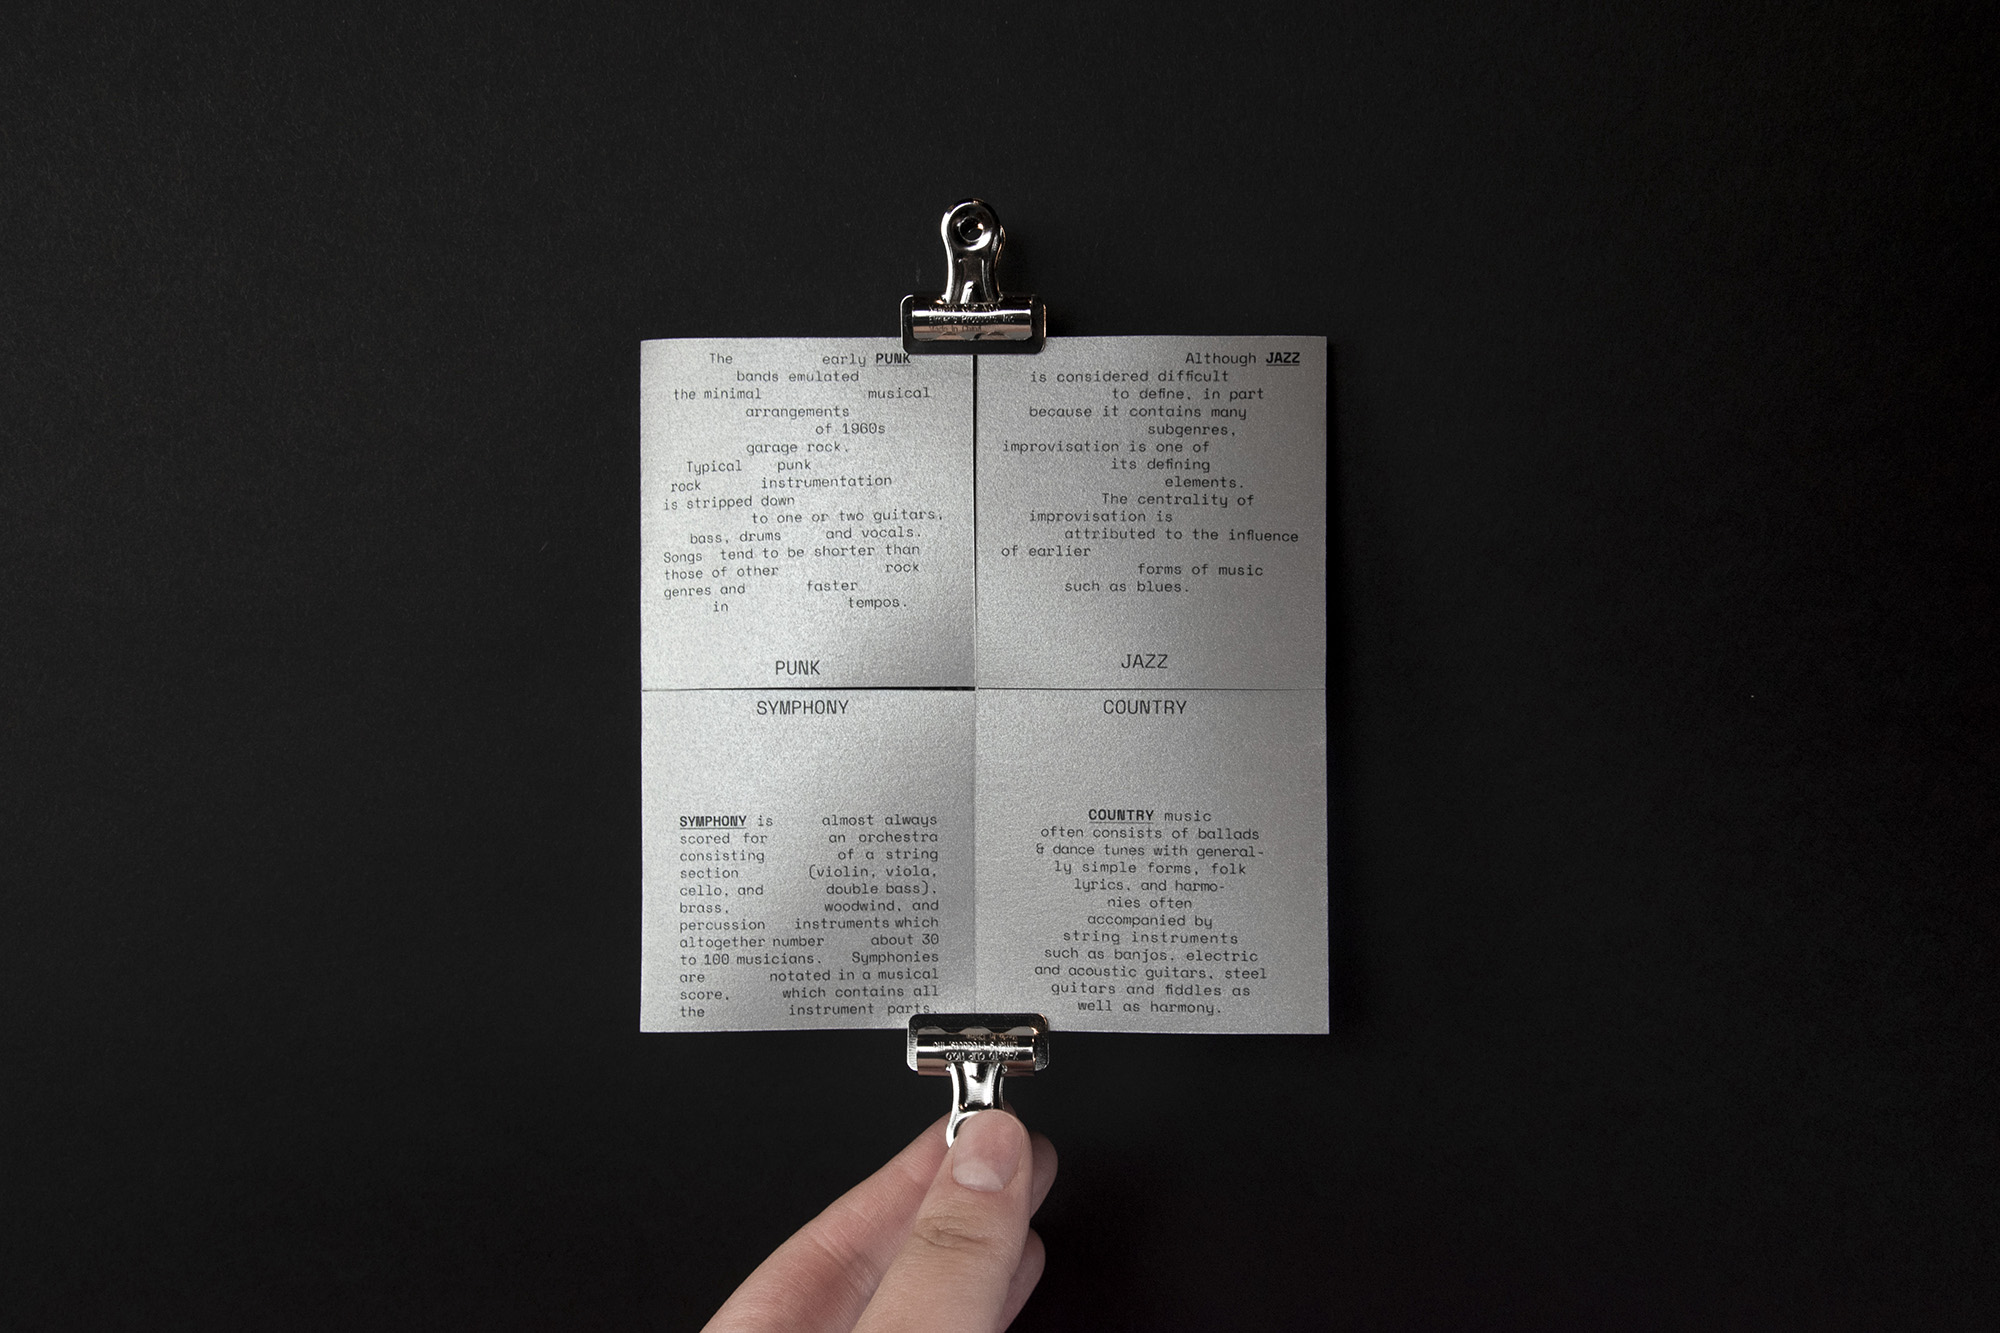 The early PUNK
bands emulated
the minimal musical
arrangements
of 1960s
garage rock.
Typical punk
rock instrumentation
is stripped down
to one or two guitars,
bass, drums and vocals.
Songs tend to be shorter than
those of other rock
genres and faster
in tempos.
PUNK
Although JAZZ
is considered difficult
to define, in part
because it contains many
subgenres,
improvisation is one of
its defining
elements.
The centrality of
improvisation is
attributed to the influence
of earlier
forms of music
such as blues.
JAZZ
SYMPHONY
SYMPHONY is almost always
scored for an orchestra
consisting of a string
section (violin, viola,
cello, and double bass),
brass, woodwind, and
percussion instruments which
altogether number about 30
to 100 musicians. Symphonies
are notated in a musical
score, which contains all
the instrument parts.
COUNTRY
COUNTRY music
often consists of ballads
& dance tunes with general-
ly simple forms, folk
lyrics, and harmo-
nies often
accompanied by
string instruments
such as banjos, electric
and acoustic guitars, steel
guitars and fiddles as
well as harmony.